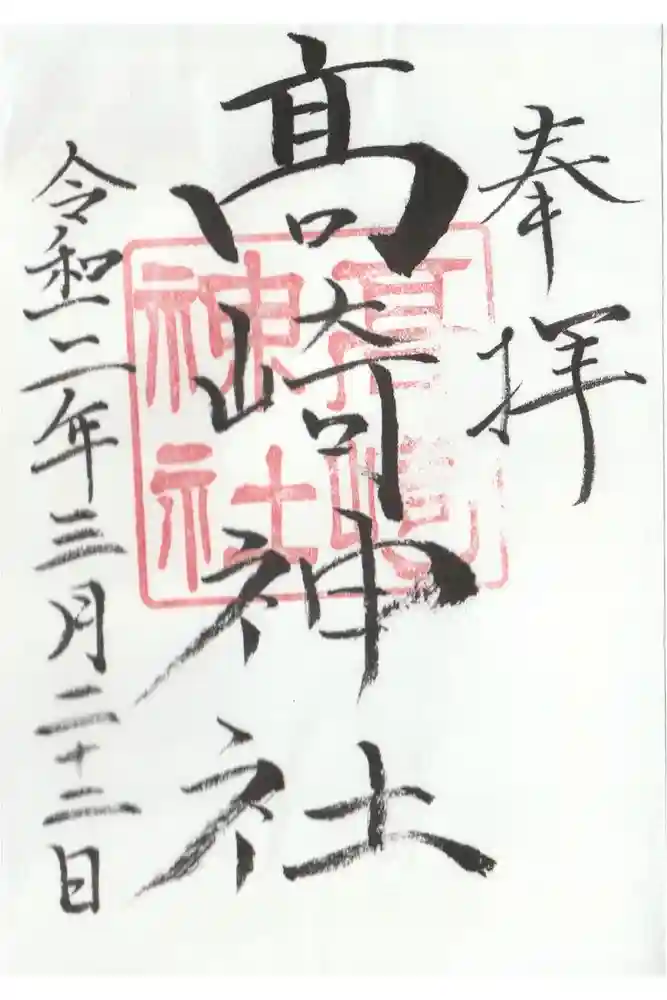 奉拝
髙崎神社
高崎
神社
令和二年三月二十二日